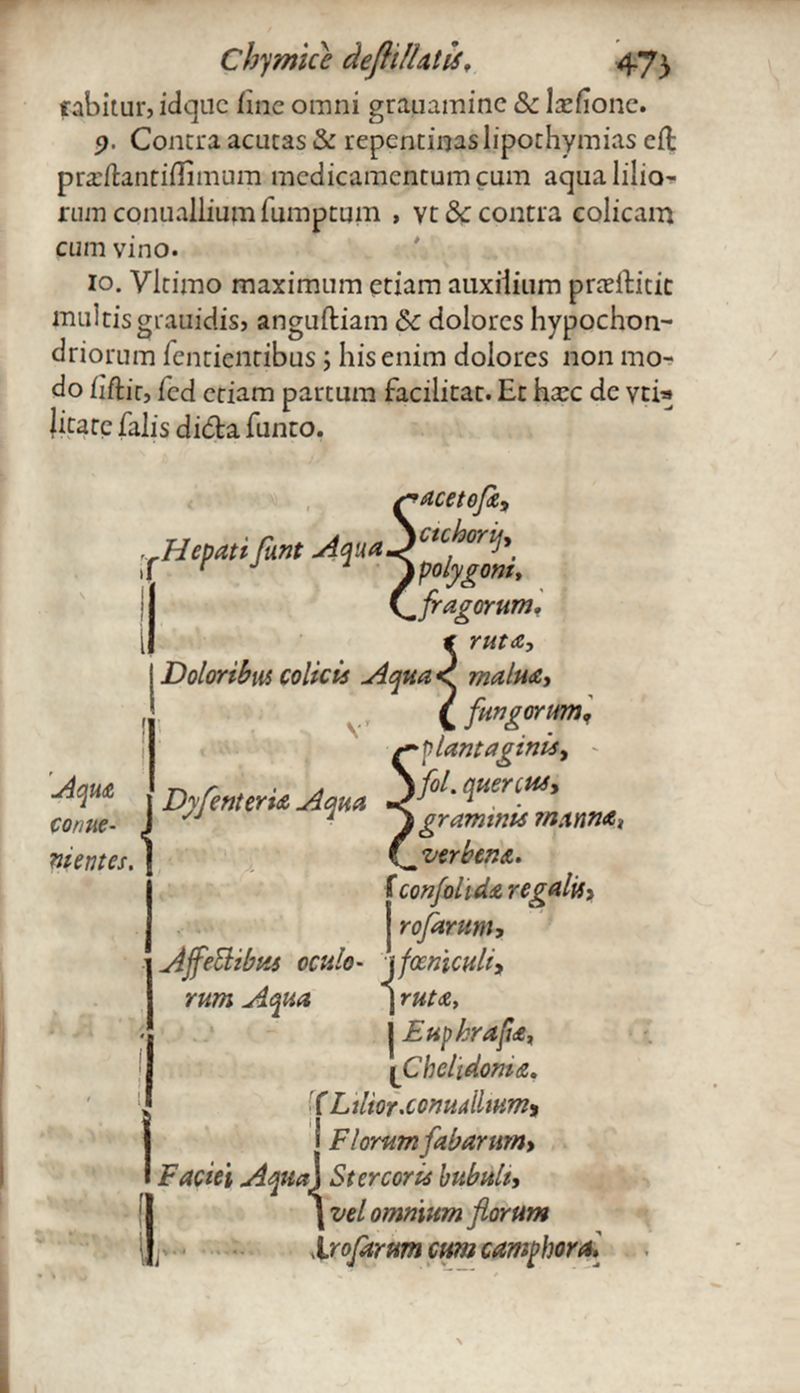 Chymicè deſtillatis. 473
tabitur, idque ſine omni grauamine & læſione.
9. Contra acutas & repentinas lipothymias eſt
præſtantiſſimum medicamentum cum aqua lilio-
rum conuallium ſumptum , vt & contra colicam
cum vino.
10. Vltimo maximum etiam auxilium præſtitit
multis grauidis, anguſtiam & dolores hypochon-
driorum ſentientibus ; his enim dolores non mo-
do ſiſtit, ſed etiam partum facilitat. Et hæc de vti-
litate ſalis dicta ſunto.
Aquæ
conue-
nientes.
Hepati ſunt Aqua
acetoſæ,
cichorij,
polygoni,
fragorum.
Doloribus colicis Aqua
rutæ,
maluæ,
fungorum.
Dyſenteriæ Aqua
plantaginis,
fol. quercus,
graminis mannæ,
verbenæ.
Affectibus oculo-
rum Aqua
conſolidæ regalis,
roſarum,
fœniculi,
rutæ,
Euphraſiæ,
Chelidoniæ.
Faciei Aqua
Lilior. conuallium,
Florum fabarum,
Stercoris bubuli,
vel omnium florum
roſarum cum camphora.